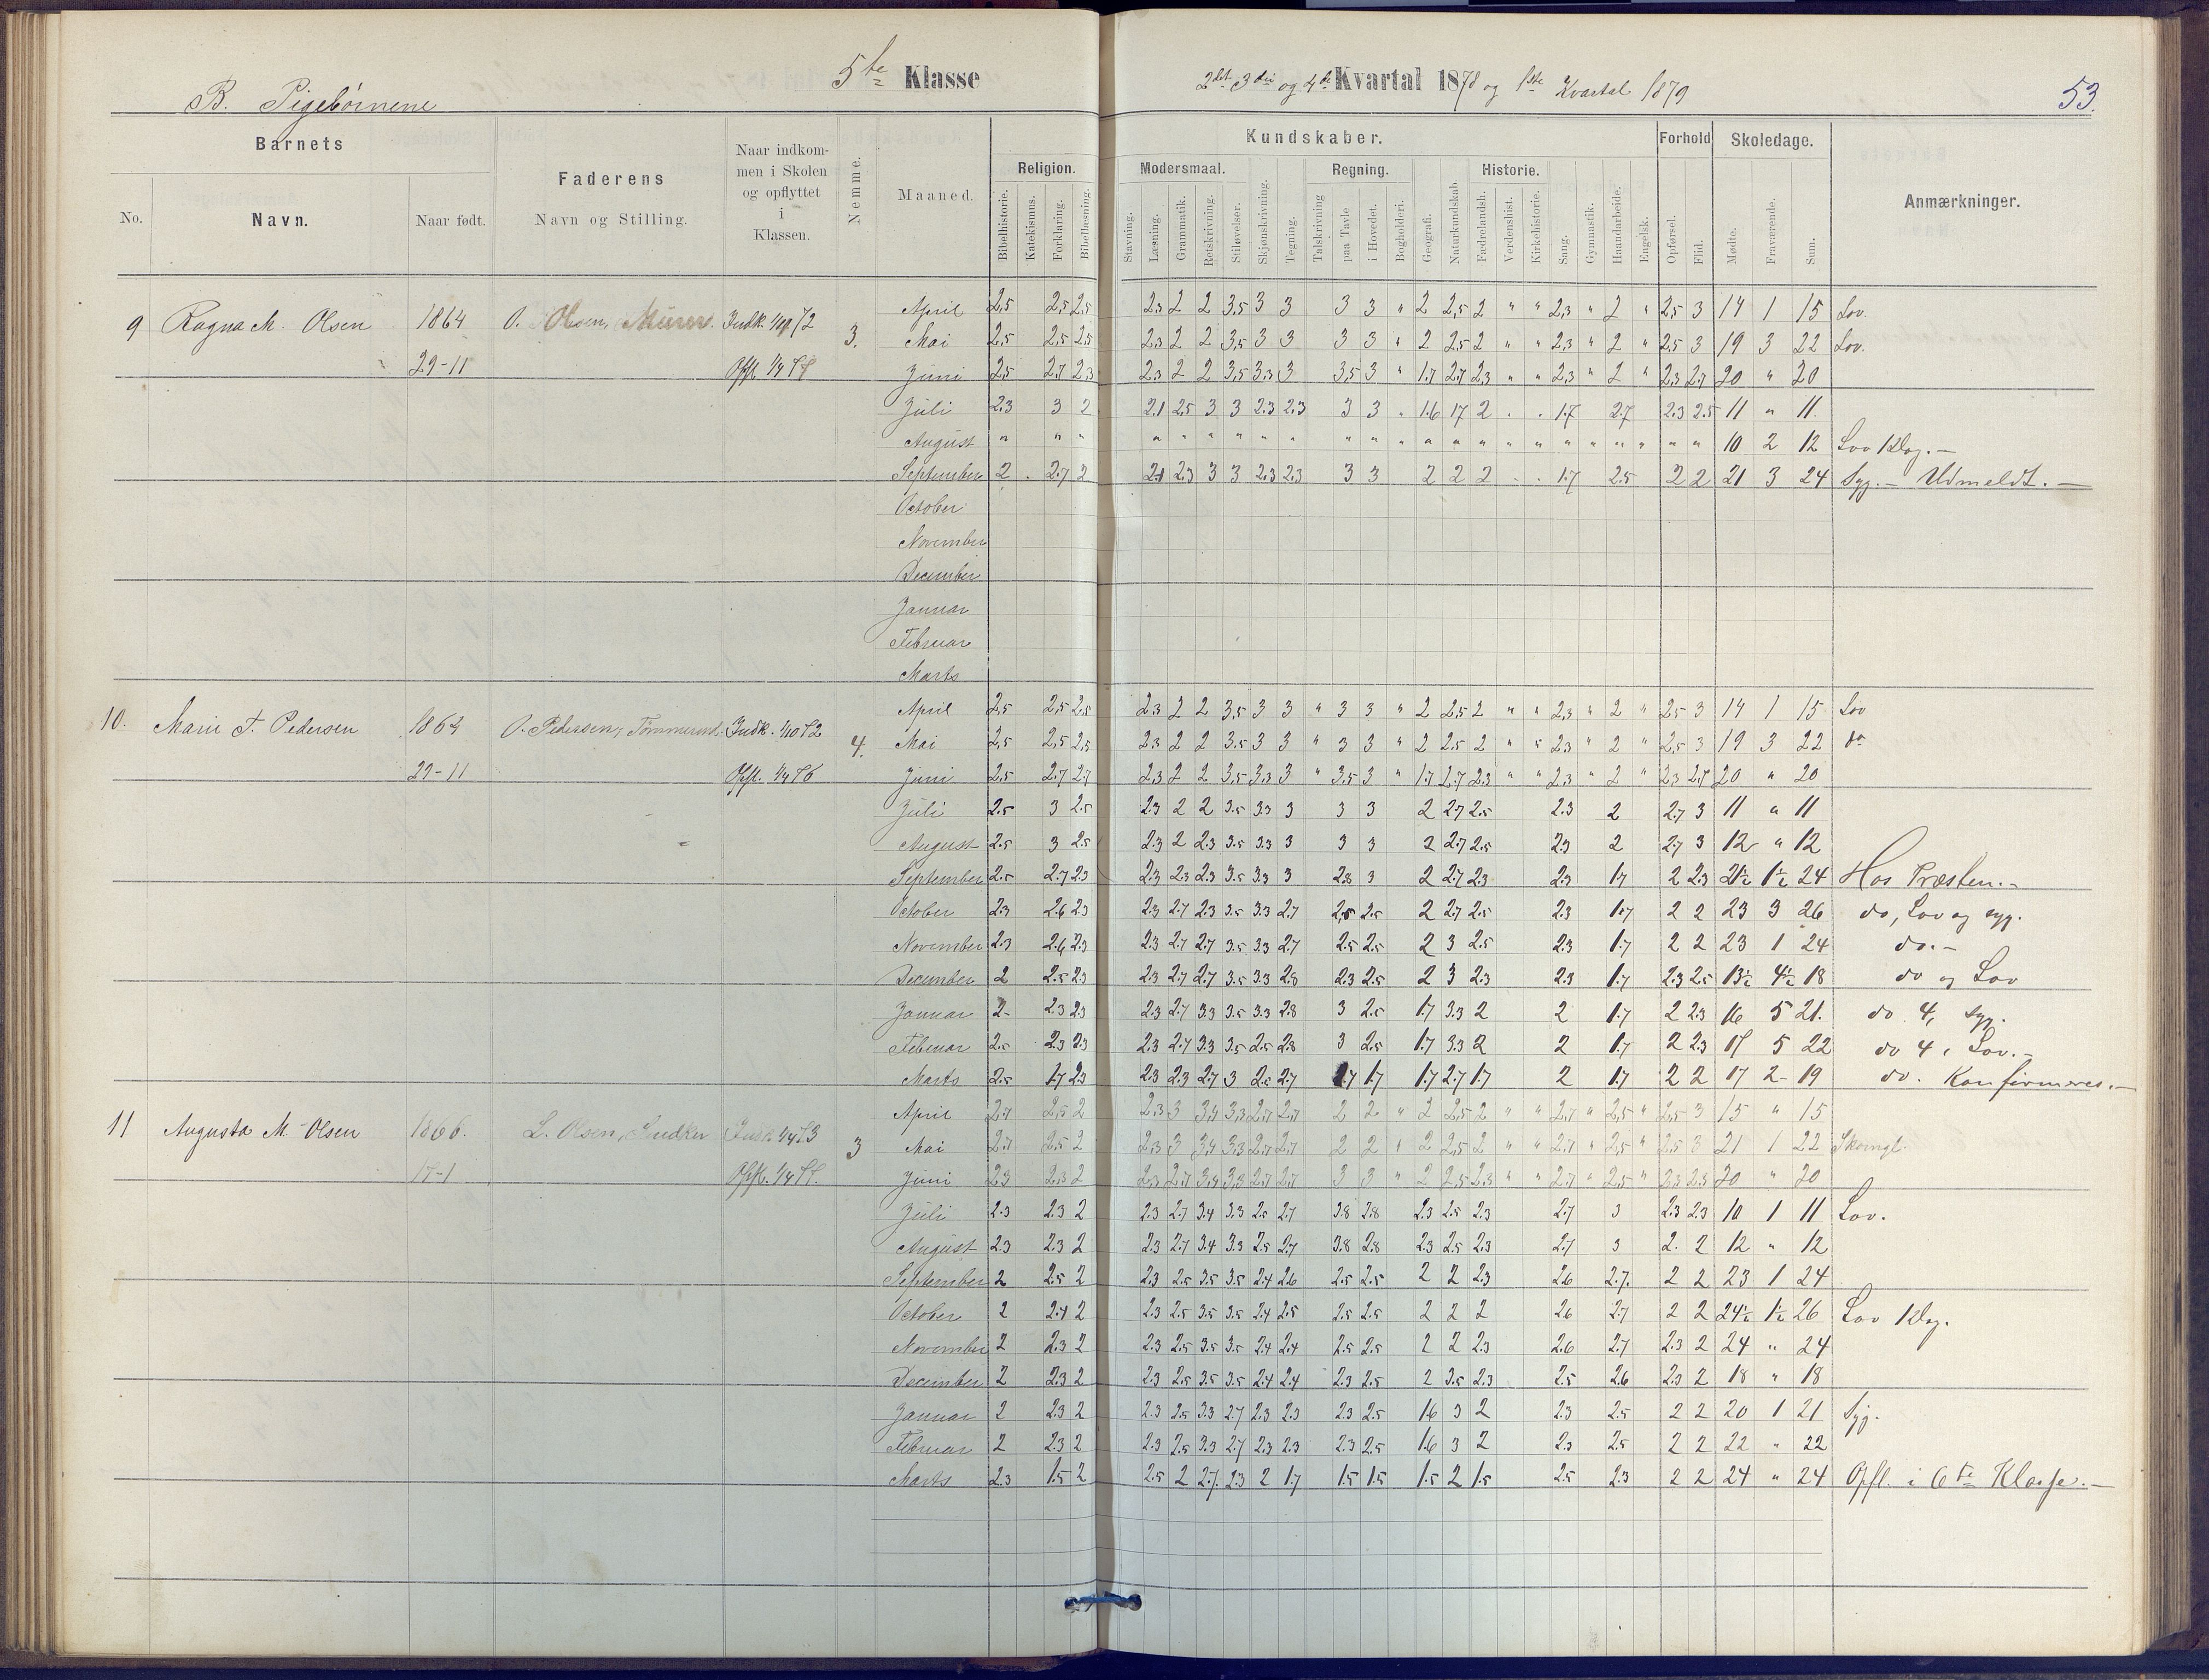 5te Klasse
2det 3die og 4de Kvartal 1878 og 1ste Kvartal 1879
53.
B. Pigebørnene
Barnets
No.
Navn.
Naar født.
Faderens
Navn og Stilling.
Naar indkom-
men i Skolen
og opflyttet
i
Klassen.
Nemme.
Maaned.
Kundskaber.
Religion.
Bibelhistorie.
Katekismus.
Forklaring.
Bibellæsning.
Modersmaal.
Stavning.
Læsning.
Grammatik.
Retskrivning.
Stiløvelser.
Skjønskrivning.
Tegning.
Regning.
Talskrivning
paa Tavle
i Hovedet.
Bogholderi.
Geografi.
Naturkundskab.
Historie.
Fædrelandsh.
Verdenshist.
Kirkehistorie.
Sang.
Gymnastik.
Haandarbeide.
Engelsk.
Forhold
Opførsel.
Flid.
Skoledage.
Mødte.
Fraværende.
Sum.
Anmærkninger.
9 Ragna M. Olsen 1864 O. Olsen, Murer. Indk. 1/10 72 3.
29-11 Opfl. 1/4 77
April 2,5 2,5 2,5 2,3 2 2 3,5 3 3 3 3 " 2 2,5 2 " " 2,3 " 2 " 2,5 3 14 1 15 Lov.
Mai 2,5 2,5 2,5 2,3 2 2 3,5 3 3 3 3 " 2 2,5 2 " " 2,3 " 2 " 2,5 3 19 3 22 Lov.
Juni 2,5 2,7 2,3 2,3 2 2 3,5 3,3 3 3,5 3 " 1,7 2,7 2,3 " " 2,3 " 2 " 2,3 2,7 20 " 20
Juli 2.3 3 2 2.1 2.5 3 3 2.3 2.3 3 3 . 1.6 1.7 2 . . 1.7 2.7 2.3 2.5 11 " 11.
August " " " " " " " " " " " " " " " " " " " " " " " 10 2 12 Lov 1 Dag.-
September 2 . 2.7 2 2.1 2.3 3 3 2.3 2.3 3 3 2 2 2 . . 1.7 2.5 2 2 21 3 24 Syg. - Udmeldt. -
October
November
December
Januar
Februar
Marts
10. Marie T. Pedersen 1864 O. Pedersen, Tømmermd. Indk. 1/10 72 4.
29-11 Opfl. 1/4 76
April 2,5 2,5 2,5 2,3 2 2 3,5 3 3 " 3 3 " 2 2,5 2 " " 2,3 " 2 " 2,5 3 14 1 15 Lov
Mai 2,5 2,5 2,5 2,3 2 2 3,5 3 3 " 3 3 " 2 2,5 2 " " 2,3 " 2 " 2,5 3 19 3 22 do
Juni 2,5 2,7 2,7 2,3 2 2 3,5 3,3 3 " 3,5 3 " 1,7 2,7 2,3 " " 2,3 " 2 " 2,3 2,7 20 " 20
Juli 2.5 3 2.5 2.3 2 2 3.5 3.3 3 3 3 2 2.7 2.5 2.3 2 2.7 3 11 " 11
August 2.5 3 2.5 2.3 2 2.3 3.5 3.3 3 3 3 2 2.7 2.5 2.3 2 2.7 3 12 " 12
September 2.5 2.7 2.3 2.3 2.3 2.3 3.5 3.3 3 2.8 3 2 2.7 2.3 2.3 1.7 2 2.3 21½ 1½ 24 Hos Præsten.-
October 2.3 2.6 2.3 2.3 2.7 2.3 3.5 3.3 2.7 2,5 2.5 2 2.7 2.5 2.3 1.7 2 2 23 3 26 do, Lov og syg.
November 2.3 2.6 2.3 2.3 2.7 2.7 3.5 3.3 2.7 2.5 2.5 2 3 2.5 2.3 1.7 2 2 23 1 24 do.-
December 2 2.5 2.3 2.3 2.7 2.7 3.5 3.3 2.8 2.3 2.5 2 3 2.3 2.3 1.7 2.3 2.5 13½ 4½ 18 do og Lov
Januar 2- 2.3 2.3 2.3 2.7 3.3 3.5 3.3 2.8 3 2.5 1.7 3.3 2 2 1.7 2 2.3 16 5 21. do 4, syg.
Februar 2.5 2.3 2.3 2.3 2.7 3.3 3.5 2.5 2.8 3 2.5 1.7 3.3 2 2 1.7 2 2.3 17 5 22 do 4, Lov.-
Marts 2.5 1.7 2.3 2.3 2.3 2.7 3 2.5 2.7 1.7 1.7 1.7 2.7 1.7 2 1.7 2 2 17 2- 19 do. Konfirmeres.-
11 Augusta M. Olsen 1866. L. Olsen, Snedker Indk. 1/4 73 3
17-1 Opfl. 1/4 77.
April 2,7 2,5 2 2,3 3 3,4 3,3 2,7 2,7 2 2 " 2 2,5 2 " " 2,7 " 2,5 " 2,5 3 15 " 15
Mai 2,7 2,5 2 2,3 3 3,4 3,3 2,7 2,7 2 2 " 2 2,5 2 " " 2,7 " 2,5 " 2,5 3 21 1 22 Skomgl.
Juni 2,3 2,3 2 2,3 2,7 3,4 3,3 2,7 2,7 3 3 " 2 2,5 2,3 " " 2,7 " 2,5 " 2,3 2,3 20 " 20
Juli 2.3 2.3 2 2.3 2.7 3.4 3.3 2.5 2.7 3.8 2.8 2.3 2.5 2.3 2.7 3 2.3 2.3 10 1 11 Lov.
August 2.3 2.3 2 2.3 2.7 3.4 3.3 2.5 2.7 3.8 2.8 2.3 2.5 2.3 2.7 3 2. 2 12 " 12
September 2 2.5 2 2.3 2.5 3.5 3.5 2.4 2.6 2.5 2.5 2 2 2.3 2.6 2.7. 2 2 23 1 24
October 2 2.7 2 2.3 2.5 3.5 3.5 2.4 2.5 2.5 2.5 2 2 2 2.6 2.7 2 2 24½ 1½ 26 Lov 1 Dag.
November 2 2.3 2 2.3 2.5 3.5 3.5 2.4 2.4 2.5 2.5 2 2 2.3 2.6 2.7 2.3 2 24 " 24
December 2 2.3 2 2.3 2.5 3.5 3.5 2.4 2.4 2.3 2.5 2 3.5 2.3 2.5 2.6 2.3 2 18 " 18
Januar 2 2.3 2 2.3 2.5 3.3 2.7 2.3 2.3 2.3 2.5 1.6 3 2 2.3 2.5 2 2 20 1 21 Syg.
Februar 2 2.3 2 2.3 2.5 3.3 2.7 2.3 2.3 2.3 2.5 1.6 3 2 2.3 2.5 2 2 22 " 22
Marts 2.3 1.5 2 2.5 2 2.7. 2.3 2 1.7 1.5 1.5 1.5 2 1.5 2.5 2.3 2 2 24 " 24 Opfl. i 6te Klasse.-